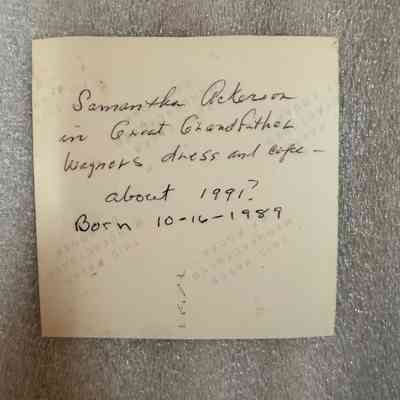 Samantha Ackerson
in Great Grandfather
Wagners dress and cape -
about 1991?
Born 10-16-1989